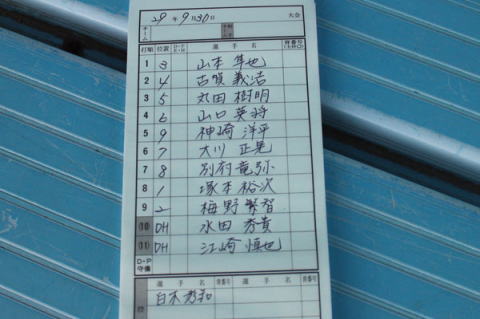 29年9月30日 大会
打順 位置 選手名 背番号
1 3 山本 隼也
2 4 古賀 義浩
3 5 太田 樹明
4 6 山口 英将
5 9 神崎 洋平
6 7 大川 正晃
7 8 別府 竜弥
8 1 塚本 裕次
9 2 梅野 繁智
(10) DH 水田 秀貴
(11) DH 江崎 慎也
D・P 守備
選手名 背番号 選手名 背番号
白木 秀和